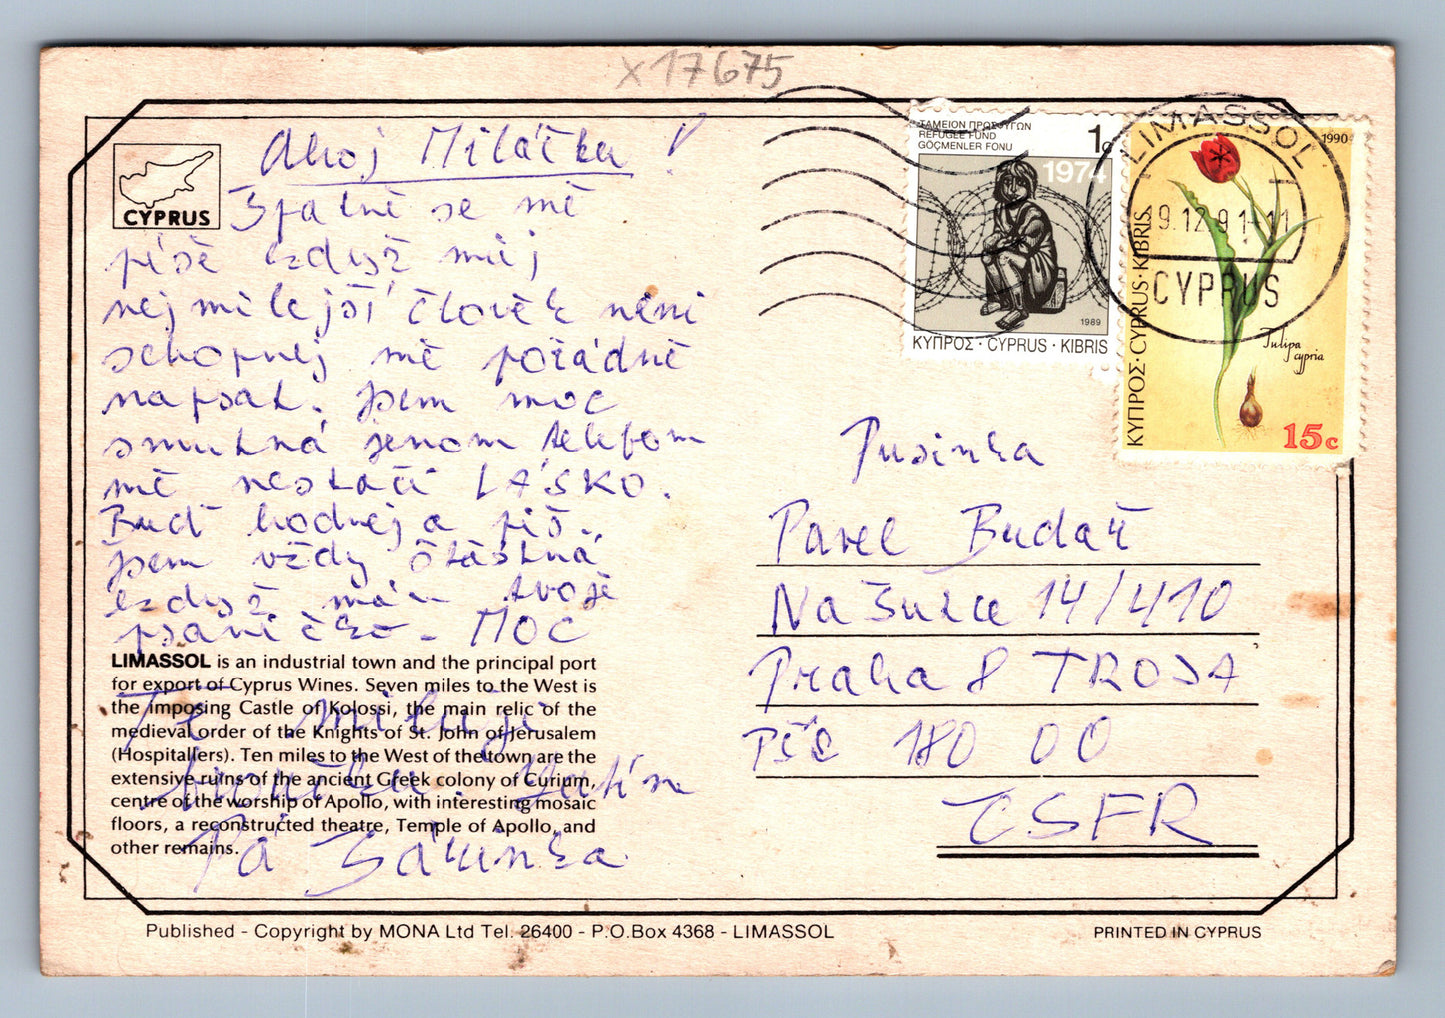 x17675
CYPRUS
Ahoj Miláčku !
Špatně se mě
píše když můj
nejmilejší člověk není
schopnej mě pořádně
napsat. Jsem moc
smutná jenom telefon
mě nestačí LÁSKO.
Buď hodnej a piš.
Jsem vždy šťastná
když mám tvoje
psaní čko. MOC
LIMASSOL is an industrial town and the principal port
for export of Cyprus Wines. Seven miles to the West is
the imposing Castle of Kolossi, the main relic of the
medieval order of the Knights of St. John of Jerusalem
(Hospitallers). Ten miles to the West of the town are the
extensive ruins of the ancient Greek colony of Curium,
centre of the worship of Apollo, with interesting mosaic
floors, a reconstructed theatre, Temple of Apollo, and
other remains.
Tě miluji
Pá
ΤΑΜΕΙΟΝ ΠΡΟΣΦΥΓΩΝ
REFUGEE FUND
GÖÇMENLER FONU
1c
1974
1989
ΚΥΠΡΟΣ · CYPRUS · KIBRIS
1990
ΚΥΠΡΟΣ · CYPRUS · KIBRIS
Tulipa
cypria
15c
LIMASSOL
9.12.91-11
CYPRUS
Pusinka
Pavel
Na Šutce 14/410
Praha 8 TROJA
PSČ 180 00
ČSFR
Published - Copyright by MONA Ltd Tel. 26400 - P.O.Box 4368 - LIMASSOL
PRINTED IN CYPRUS